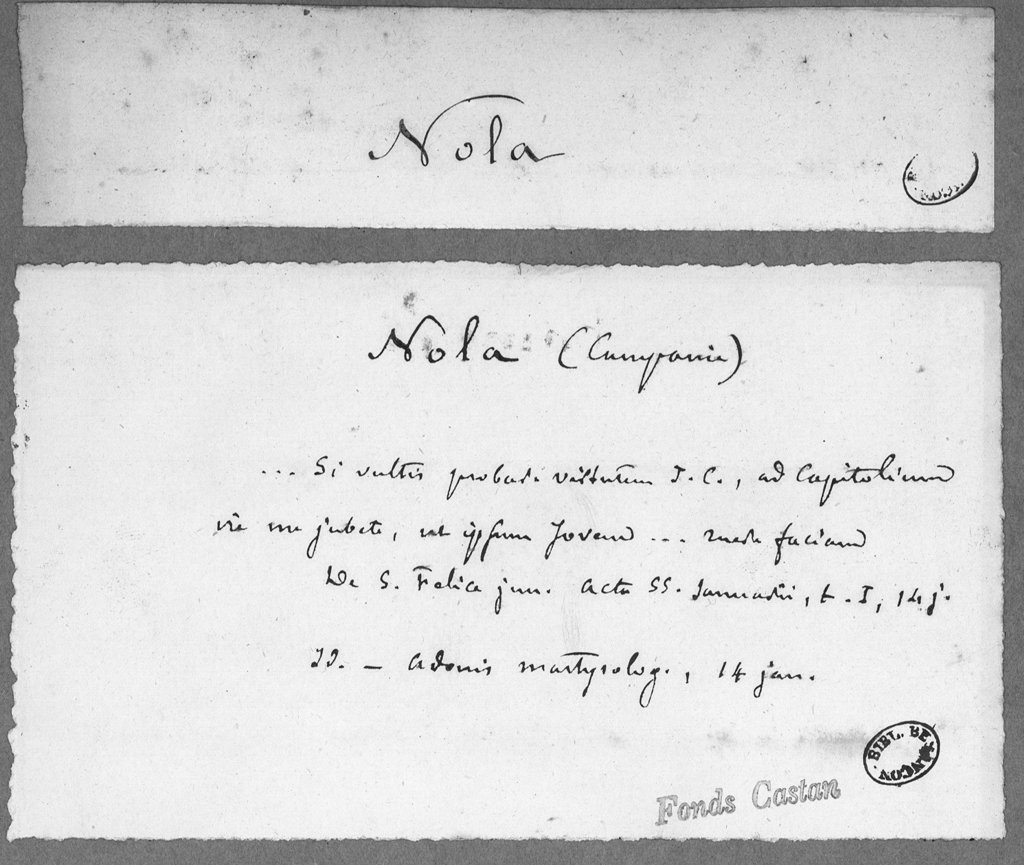 Nola
Nola (Campanie)
... Si vultis probare virtutem J. C., ad Capitolium
ire me jubete, ut ipsum Jovem ... ruere faciam
De S. Felice jun. Acta SS. Januarii, t. I, 14 j.
Id. — Adonis martyrolog., 14 jan.
BIBL. BESANÇON
Fonds Castan